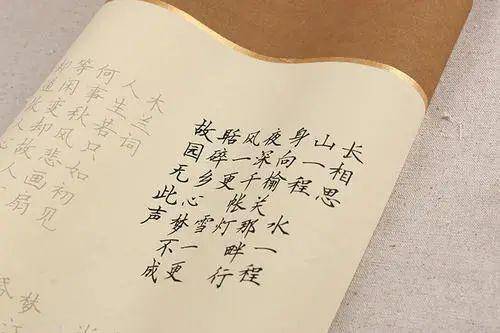 长相思
山一程 水一程
身向榆关那畔行
夜深千帐灯
风一更 雪一更
聒碎乡心梦不成
故园无此声
木兰词
人生若只如初见
何事秋风悲画扇
等闲变却故人
却道
梦